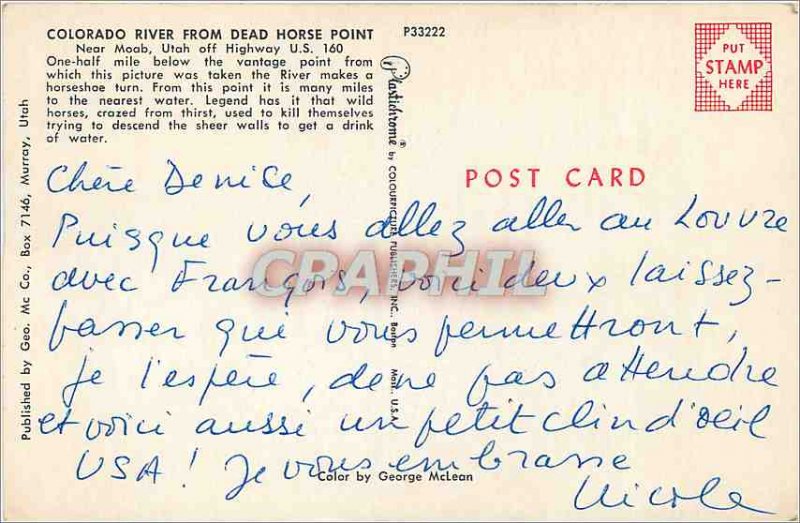 COLORADO RIVER FROM DEAD HORSE POINT
Near Moab, Utah off Highway U.S. 160
One-half mile below the vantage point from
which this picture was taken the River makes a
horseshoe turn. From this point it is many miles
to the nearest water. Legend has it that wild
horses, crazed from thirst, used to kill themselves
trying to descend the sheer walls to get a drink
of water.
P33222
PUT
STAMP
HERE
POST CARD
Published by Geo. Mc Co., Box 7146, Murray, Utah
Plastichrome® by COLOURPICTURE PUBLISHERS, INC., Boston Mass., U.S.A.
Chère Denise,
Puisque vous allez aller au Louvre
avec François, voici deux laissez-
passer qui vous permettront,
je l'espère, de ne pas attendre
et voici aussi un petit clin d'oeil
USA! Je vous embrasse
Nicole
Color by George McLean
CPAPHIL